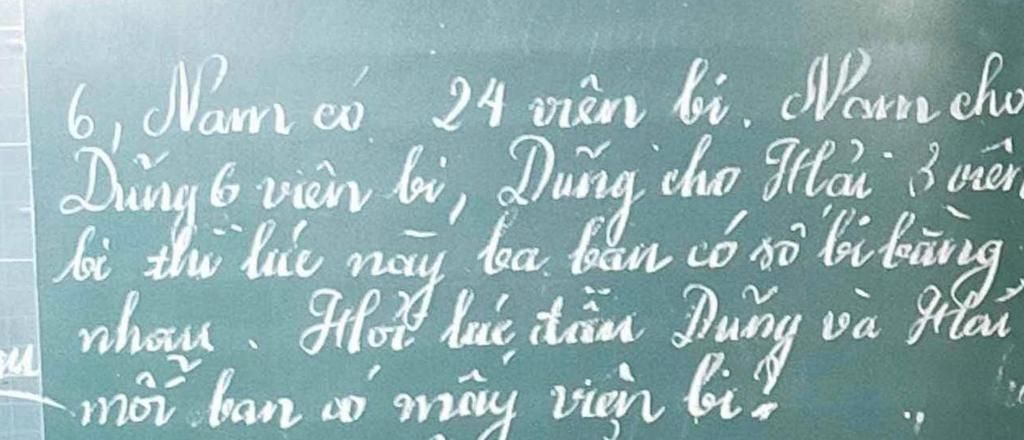 6, Nam có 24 viên bi. Nam cho
Dũng 6 viên bi, Dũng cho Hải 3 viên
bi thì lúc này ba bạn có số bi bằng
nhau. Hỏi lúc đầu Dũng và Hải
mỗi bạn có mấy viên bi?